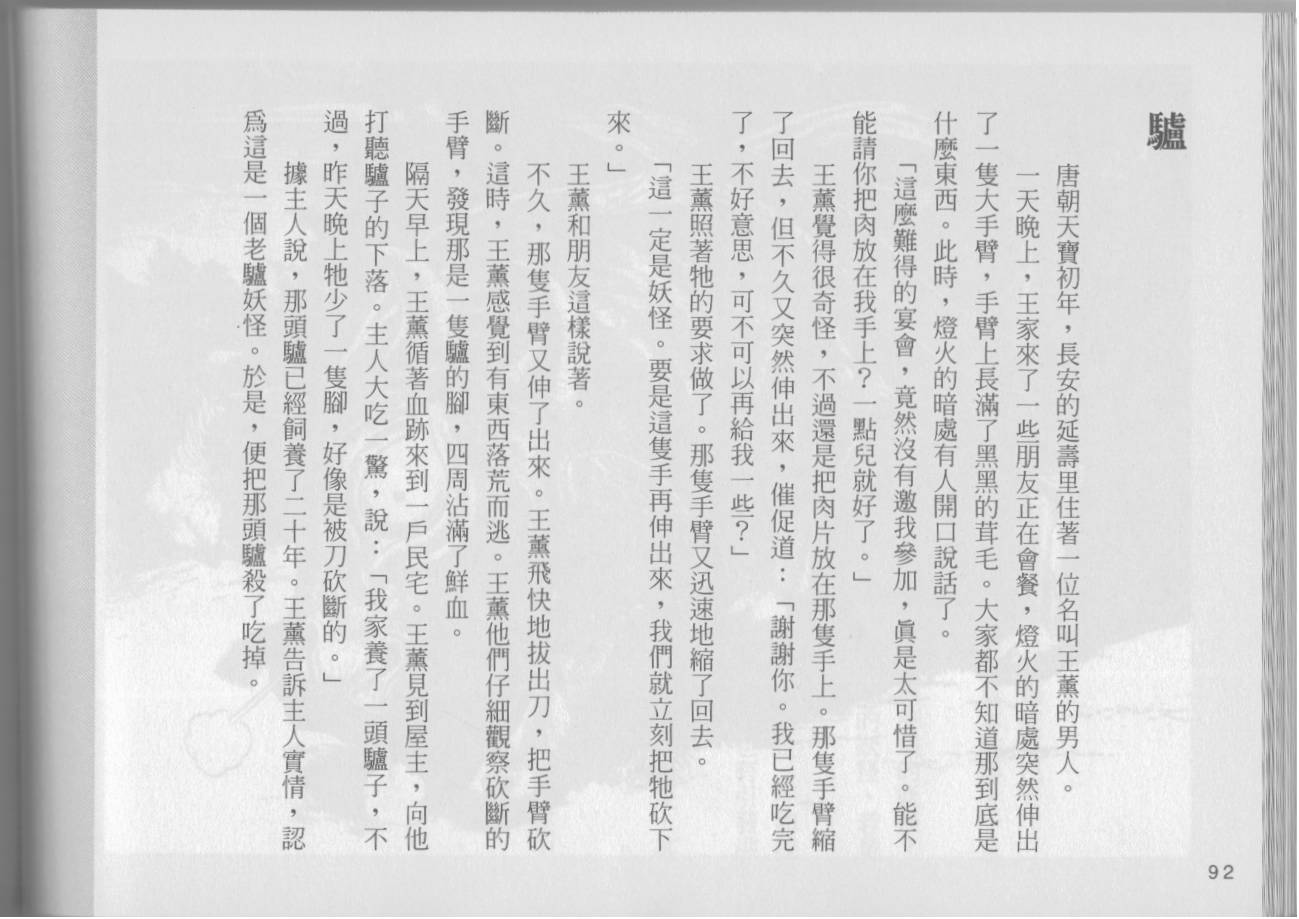 驢
唐朝天寶初年，長安的延壽里住著一位名叫王薰的男人。
一天晚上，王家來了一些朋友正在會餐，燈火的暗處突然伸出
了一隻大手臂，手臂上長滿了黑黑的茸毛。大家都不知道那到底是
什麼東西。此時，燈火的暗處有人開口說話了。
「這麼難得的宴會，竟然沒有邀我參加，眞是太可惜了。能不
能請你把肉放在我手上？一點兒就好了。」
王薰覺得很奇怪，不過還是把肉片放在那隻手上。那隻手臂縮
了回去，但不久又突然伸出來，催促道：「謝謝你。我已經吃完
了，不好意思，可不可以再給我一些？」
王薰照著牠的要求做了。那隻手臂又迅速地縮了回去。
「這一定是妖怪。要是這隻手再伸出來，我們就立刻把牠砍下
來。」
王薰和朋友這樣說著。
不久，那隻手臂又伸了出來。王薰飛快地拔出刀，把手臂砍
斷。這時，王薰感覺到有東西落荒而逃。王薰他們仔細觀察砍斷的
手臂，發現那是一隻驢的腳，四周沾滿了鮮血。
隔天早上，王薰循著血跡來到一戶民宅。王薰見到屋主，向他
打聽驢子的下落。主人大吃一驚，說：「我家養了一頭驢子，不
過，昨天晚上牠少了一隻腳，好像是被刀砍斷的。」
據主人說，那頭驢已經飼養了二十年。王薰告訴主人實情，認
爲這是一個老驢妖怪。於是，便把那頭驢殺了吃掉。
92